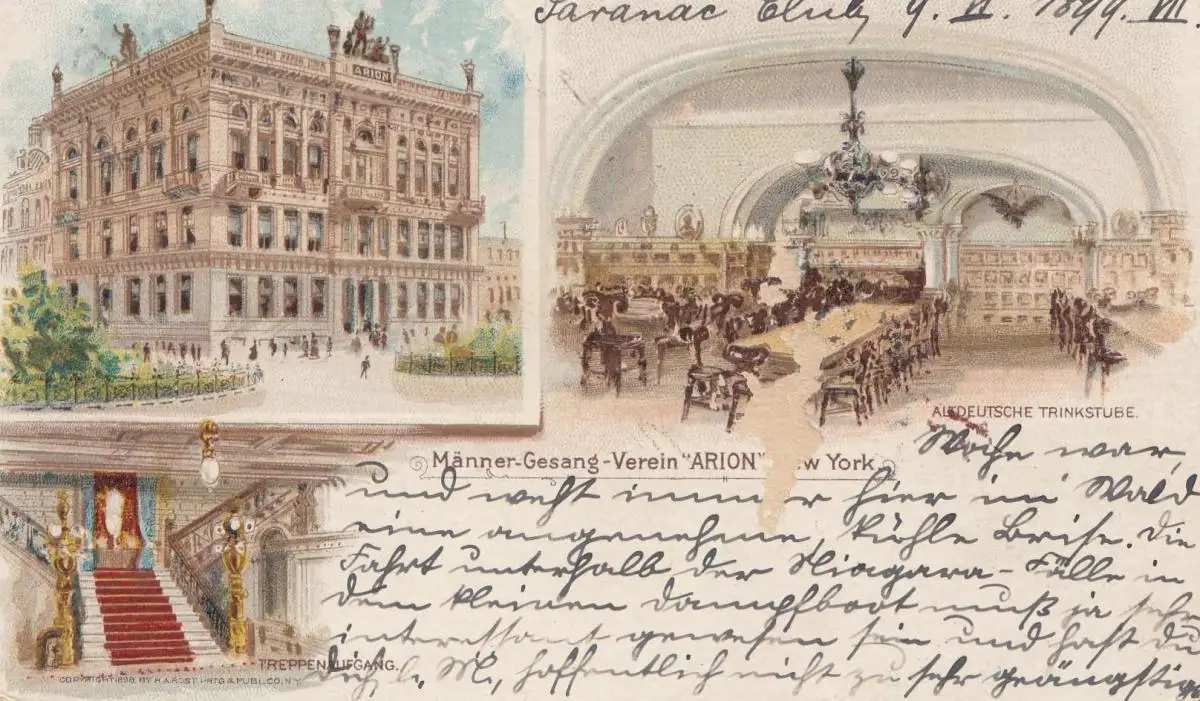 Saranac Club 9. VI. 1899. VII
ARION
ALTDEUTSCHE TRINKSTUBE.
Männer-Gesang-Verein "ARION" New York
Woche war,
und weht immer hier im Wald
eine angenehme, kühle Brise. Die
Fahrt unterhalb der Niagara-Fälle in
dem kleinen Dampfboot muß ja sehr
interessant gewesen sein und hast du
dich, l. M., hoffentlich nicht zu sehr geängstigt
TREPPENAUFGANG.
COPYRIGHT 1898, BY H.A. ROST PRTG & PUBL. CO, N.Y.